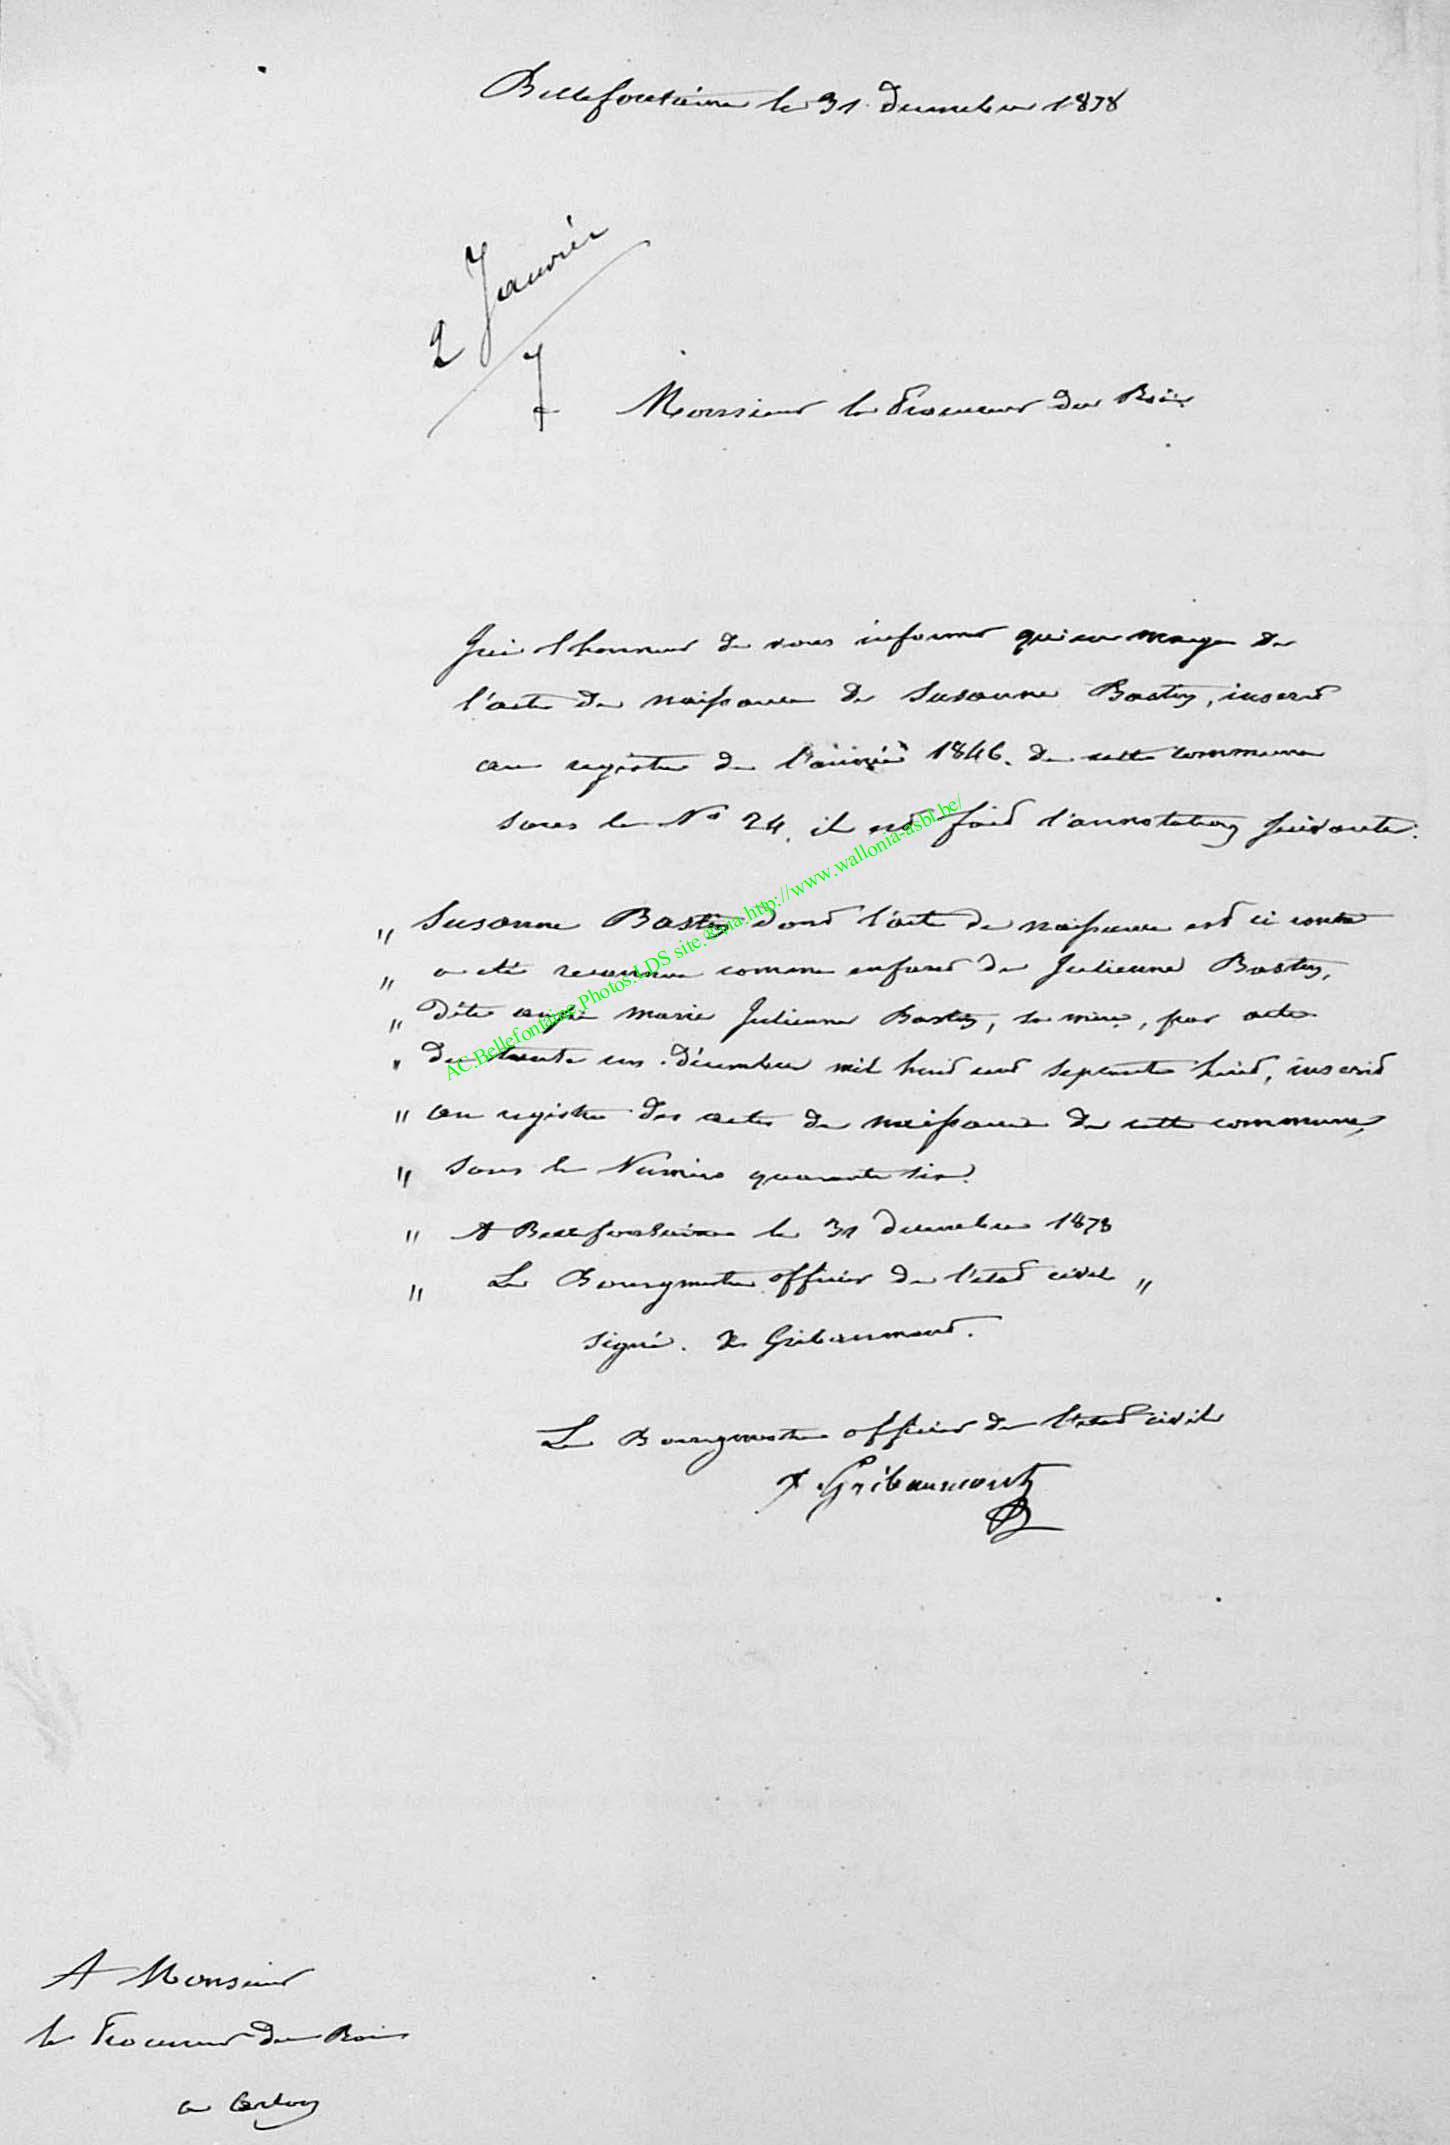 Bellefontaine le 31 decembre 1878
2 Janvier
7
Monsieur le Procureur du Roi
J'ai l'honneur de vous informer qu'en marge de
l'acte de naissance de Susanne Bastin, inscrit
au registre de l'année 1846 de cette commune
sous le No 24, il est fait l'annotation suivante:
" Susanne Bastin dont l'acte de naissance est ci contre
" a été reconnue comme enfant de Julienne Bastin,
" dite aussi marie Julienne Bastin, sa mère, par acte
" du trente un décembre mil huit cent septante huit, inscrit
" au registre des actes de naissance de cette commune,
" sous le Numéro quarante six.
" A Bellefontaine le 31 decembre 1878
" Le Bourgmestre officier de l'etat civil "
signé. de Gribaumont.
Le Bourgmestre officier de l'etat civil
Gribaumont
A Monsieur
le Procureur du Roi
a Arlon
AC.Bellefontaine.Photos.LDS site.gena.http://www.wallonia-asbl.be/